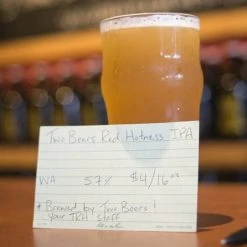 Two Beers Red Hotness IPA
WA 57% $4/16oz
* Brewed by Two Beers!
your TRH staff